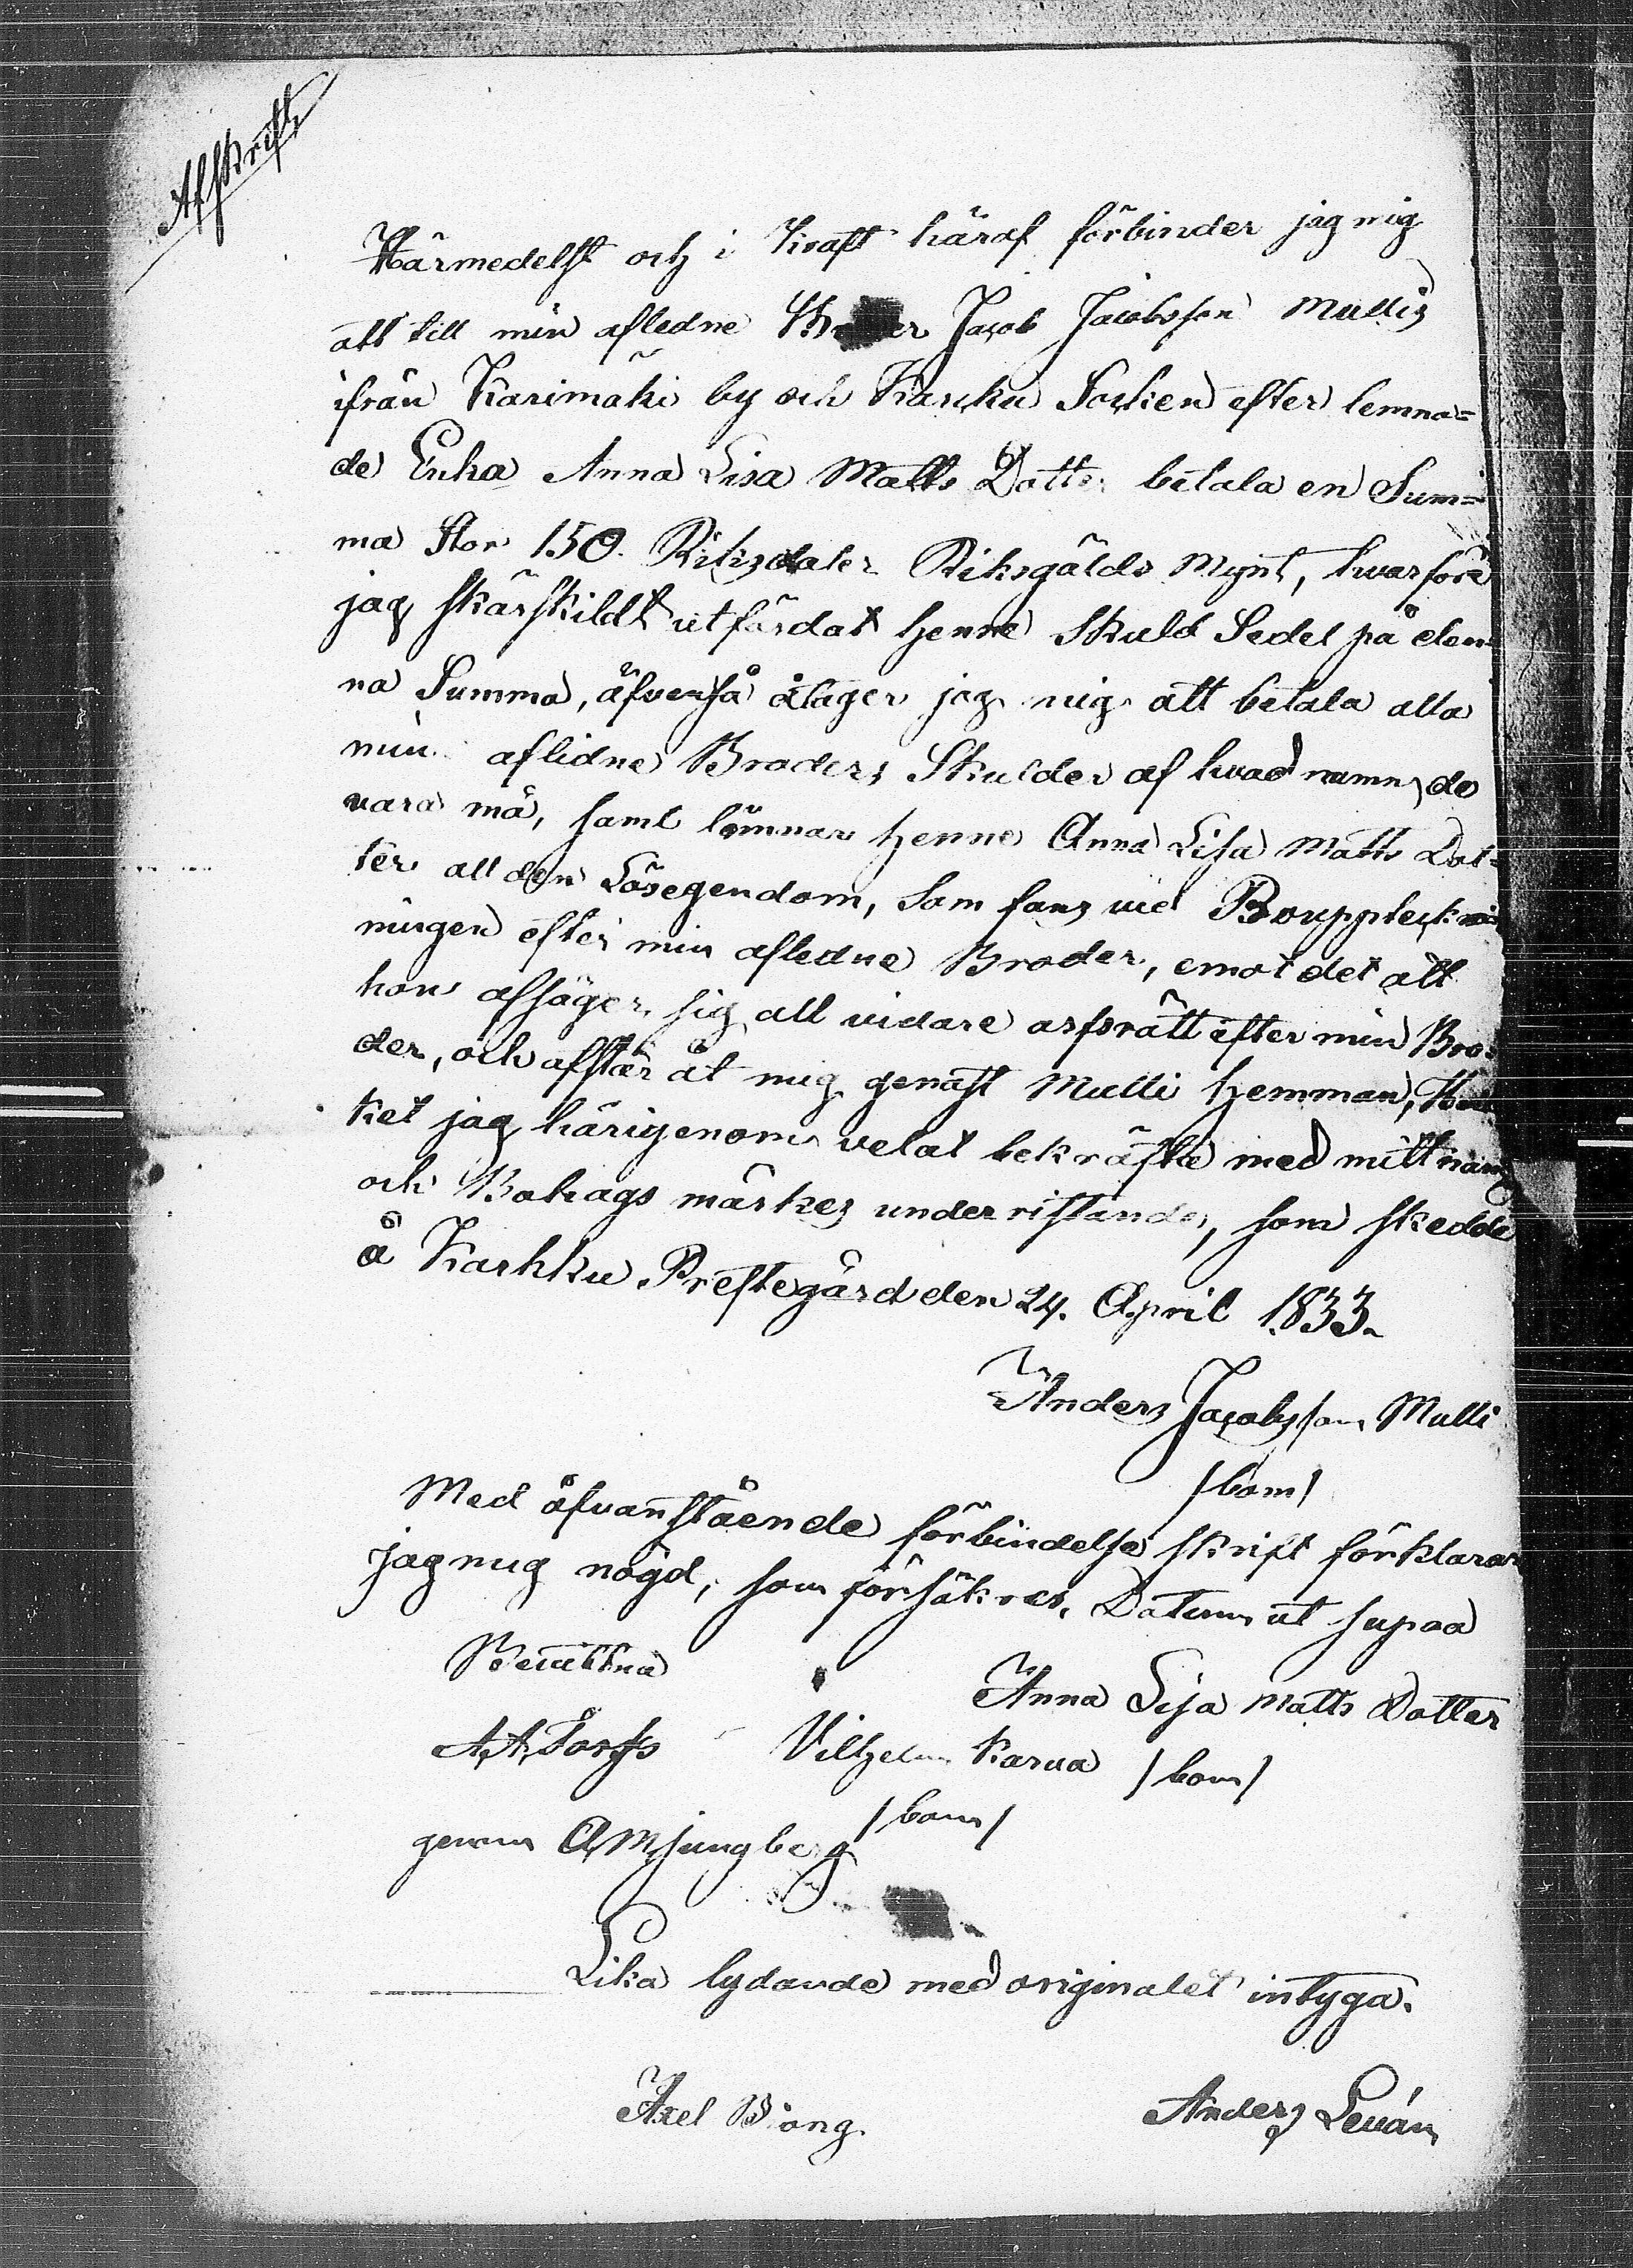 Afskrift
Härmedelst och i Kraft häraf förbinder jag mig
att till min afledne Jacob Jacobsson Mullis
ifrån Karimäki by och Karcku Socken efter lemna=
de Enka Anna Lisa Matts Dotter betala en Sum=
ma Stor 150. Riksdaler Riksgälds Mynt, hvarföre
jag särskildt utfärdat henne Skuld Sedel på den=
na Summa, äfvenså åtager jag mig att betala alla
min aflidne Broders Skulder af hvad namn de
vara må, samt lämnar henne Anna Lisa Matts Dot=
ter all den Lösegendom, som fans vid Bouppteckni
ningen efter min afledne Broder, emot det att
hon afsäger sig all vidare arfsrätt efter min Bro=
der, och afstår åt mig genast Mulli hemman,
ket jag härigenom velat bekräfta med mitt namn
och Bohags märkes underristande, som skedde
å Karkku Prestegård den 24. April 1833.
Anders Jacobsson Mulli
/bom/
Med åfvanstående förbindelse skrift förklarar
jag mig nögd, som försäkras. Datum ut supra
Bevittna
Anna Lisa Matts Dotter
A.A. Vilhelm Karna /bom/
/bom/
genom Ljungberg
Lika lydande med originalet intyga.
Axel Anders Levän